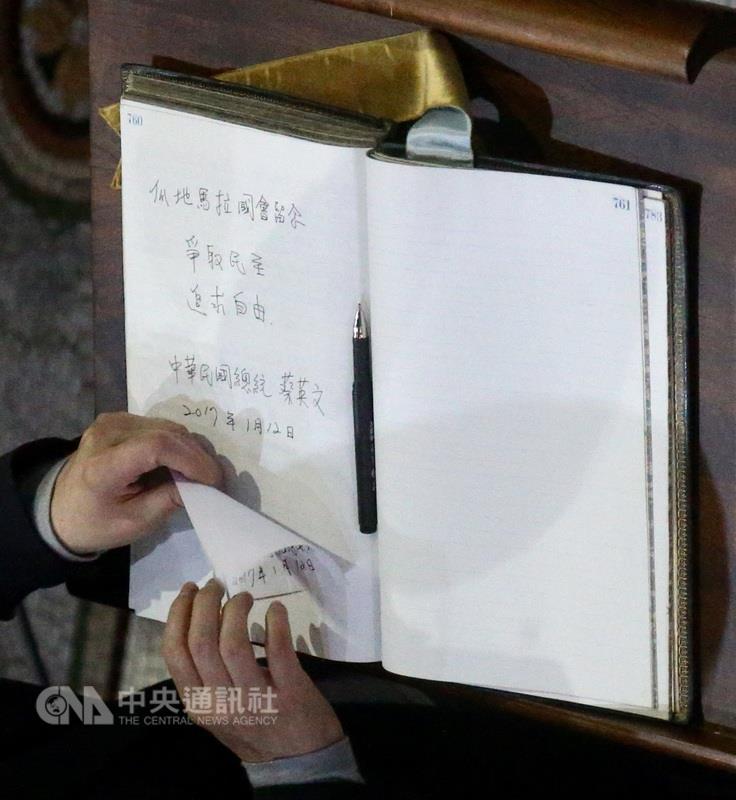 760
瓜地馬拉國會留念
爭取民主
追求自由.
中華民國總統 蔡英文
2017年1月12日
2017年1月12日
761
783
CNA 中央通訊社
THE CENTRAL NEWS AGENCY